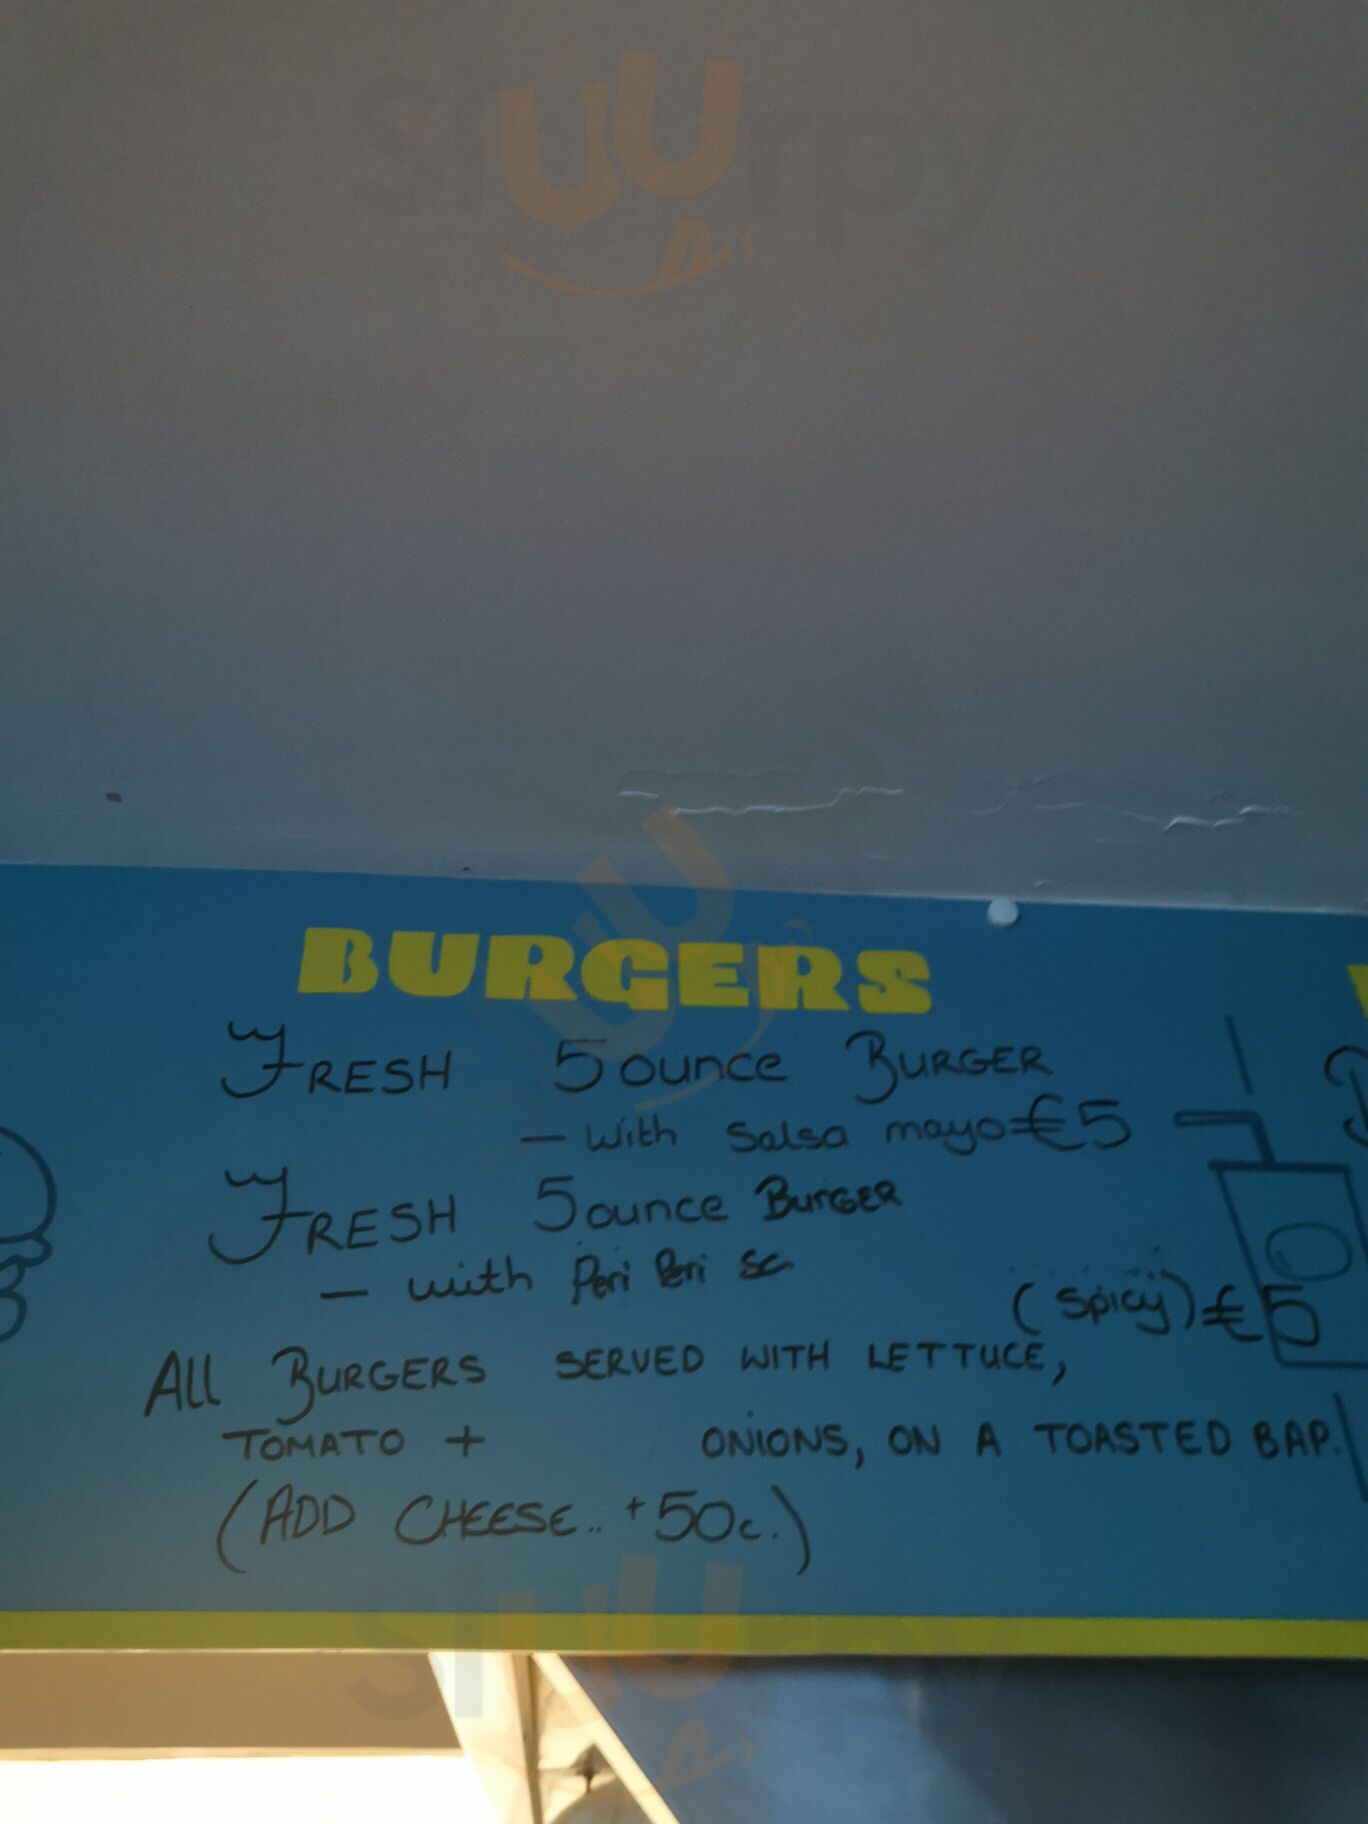 sluurpy
BURGERS
FRESH 5 ounce BURGER
- with Salsa mayo €5
FRESH 5 ounce BURGER
- with Peri Peri Sc
(spicy) €5
ALL BURGERS SERVED WITH LETTUCE,
TOMATO + ONIONS, ON A TOASTED BAP.
(ADD CHEESE.. +50c.)
sluurpy